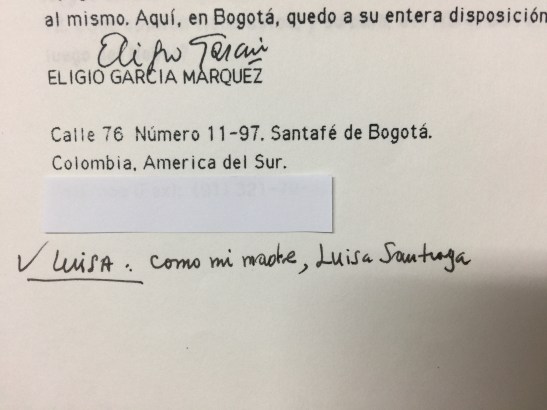 al mismo. Aquí, en Bogotá, quedo a su entera disposición
Eligio García
ELIGIO GARCIA MARQUEZ
Calle 76 Número 11-97. Santafé de Bogotá.
Colombia, America del Sur.
✓ LUISA. como mi madre, Luisa Santiaga